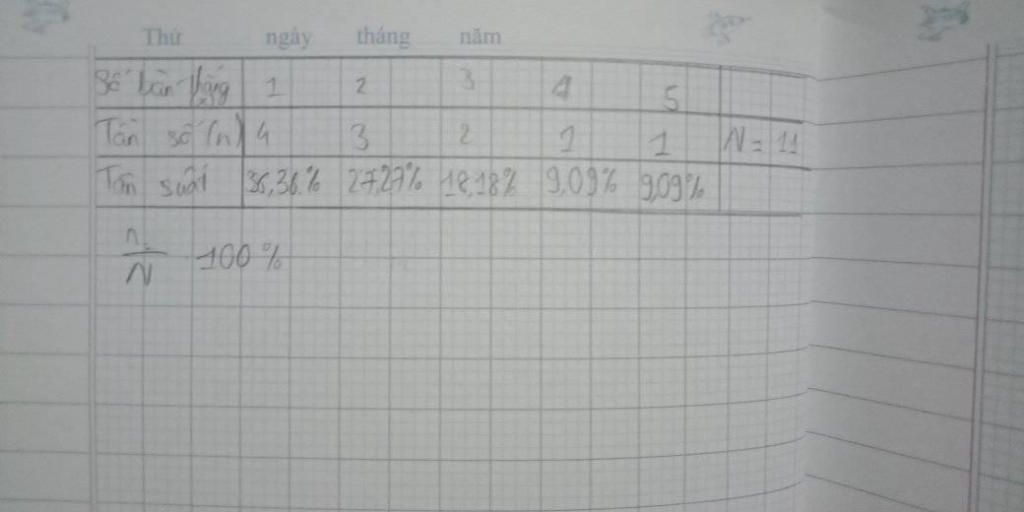 Thứ ngày tháng năm
Số bàn thắng 1 2 3 4 5
Tần số (n) 4 3 2 1 1 N = 11
Tần suất 36,36% 27,27% 18,18% 9,09% 9,09%
n/N 100%